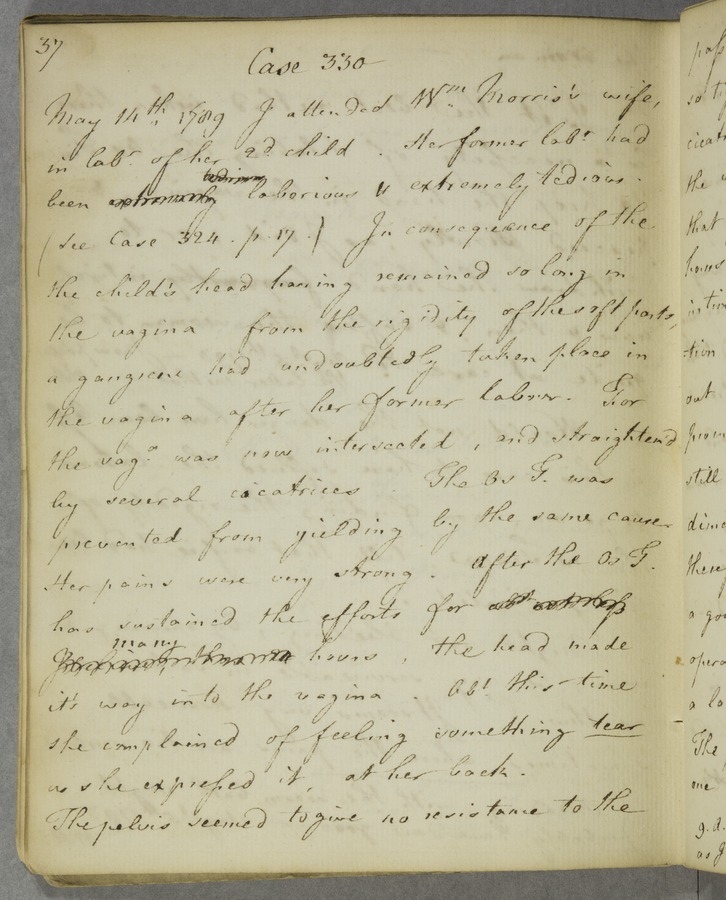 37
Case 330
May 14th. 1789 I attended Wm. Morris's wife,
in labr. of her 2d. child. Her former labr. had
tedious
been extremely laborious & extremely tedious.
(See Case 324. p. 17.) In consequence of the
the child's head having remained so long in
the vagina from the rigidity of the soft parts,
a gangrene had undoubtedly taken place in
the vagina after her former labour. For
the vaga. was now intersected, and straighten'd
by several cicatrices. The Os T. was
prevented from yielding by the same cause.
Her pains were very strong. After the Os T.
has sustained the efforts for
many
hours, the head made
it's way into the vagina. Abt. this time
she complained of feeling something tear
as she expressed it, at her back.
The pelvis seemed to give no resistance to the
the
that
hours
tion
out
from
still
there
a
The
me